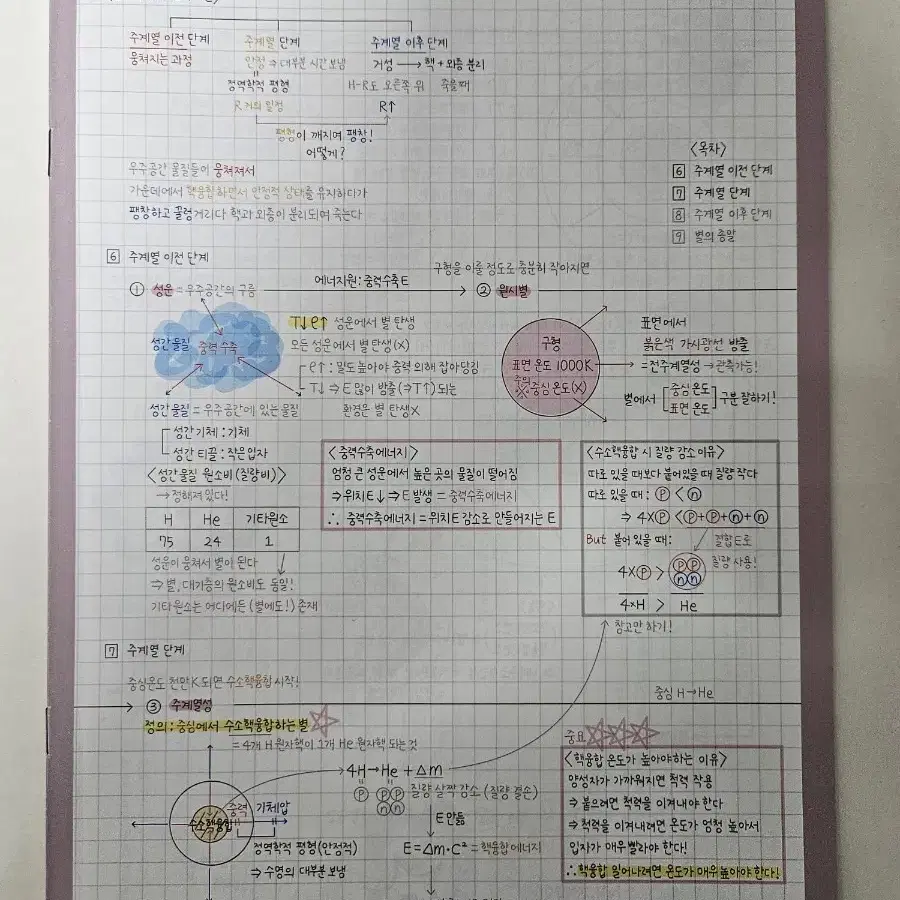 주계열 이전 단계
뭉쳐지는 과정
주계열 단계
안정 ⇒ 대부분 시간 보냄
정역학적 평형
R 거의 일정
주계열 이후 단계
거성 → 핵 + 외층 분리
H-R도 오른쪽 위 죽을때
R↑
평형이 깨지며 팽창!
어떻게?
우주공간 물질들이 뭉쳐져서
가운데에서 핵융합하면서 안정적 상태를 유지하다가
팽창하고 꿀렁거리다 핵과 외층이 분리되며 죽는다
<목차>
6 주계열 이전 단계
7 주계열 단계
8 주계열 이후 단계
9 별의 종말
6 주계열 이전 단계
① 성운 = 우주공간의 구름
에너지원 : 중력수축E
구형을 이룰 정도로 충분히 작아지면
② 원시별
성간물질 중력 수축
T↓ ρ↑ 성운에서 별 탄생
모든 성운에서 별 탄생(X)
ρ↑ : 밀도 높아야 중력 의해 잡아당김
T↓ ⇒ E 많이 방출 (⇒T↑) 되는
환경은 별 탄생X
성간물질 = 우주공간에 있는 물질
성간기체 : 기체
성간 티끌 : 작은입자
구형
표면 온도 1000K
주의
※중심 온도(X)
표면에서
붉은색 가시광선 방출
=전주계열성 → 관측가능!
별에서 [중심 온도
표면 온도] 구분 잘하기!
<성간물질 원소비 (질량비)>
→ 정해져있다!
H He 기타원소
75 24 1
성운이 뭉쳐서 별이 된다
⇒ 별, 대기층의 원소비도 동일!
기타원소는 어디에든 (별에도!) 존재
<중력수축에너지>
엄청 큰 성운에서 높은 곳의 물질이 떨어짐
⇒ 위치E↓ ⇒ E 발생 = 중력수축에너지
∴ 중력수축에너지 = 위치E 감소로 만들어지는 E
<수소핵융합 시 질량 감소 이유>
따로 있을 때보다 붙어있을 때 질량 작다
따로 있을 때 : ⓟ < ⓝ
⇒ 4Xⓟ < ⓟ+ⓟ+ⓝ+ⓝ
But 붙어 있을 때 :
결합E로
질량 사용!
4Xⓟ > ⓟⓟ
ⓝⓝ
4×H > He
참고만 하기!
7 주계열 단계
중심온도 천만K 되면 수소핵융합 시작!
중심 H→He
③ 주계열성
정의 : 중심에서 수소핵융합하는 별
= 4개 H 원자핵이 1개 He 원자핵 되는 것
중력 기체압
수소핵융합
정역학적 평형(안정적)
⇒ 수명의 대부분 보냄
4H → He + Δm
ⓟ ⓟⓟ
ⓝⓝ
질량 살짝 감소 (질량 결손)
E 만듦
E = Δm·C² = 핵융합에너지
중요
<핵융합 온도가 높아야하는 이유>
양성자가 가까워지면 척력 작용
⇒ 붙으려면 척력을 이겨내야 한다
⇒ 척력을 이겨내려면 온도가 엄청 높아서
입자가 매우 빨라야 한다!
∴ 핵융합 일어나려면 온도가 매우 높아야 한다!